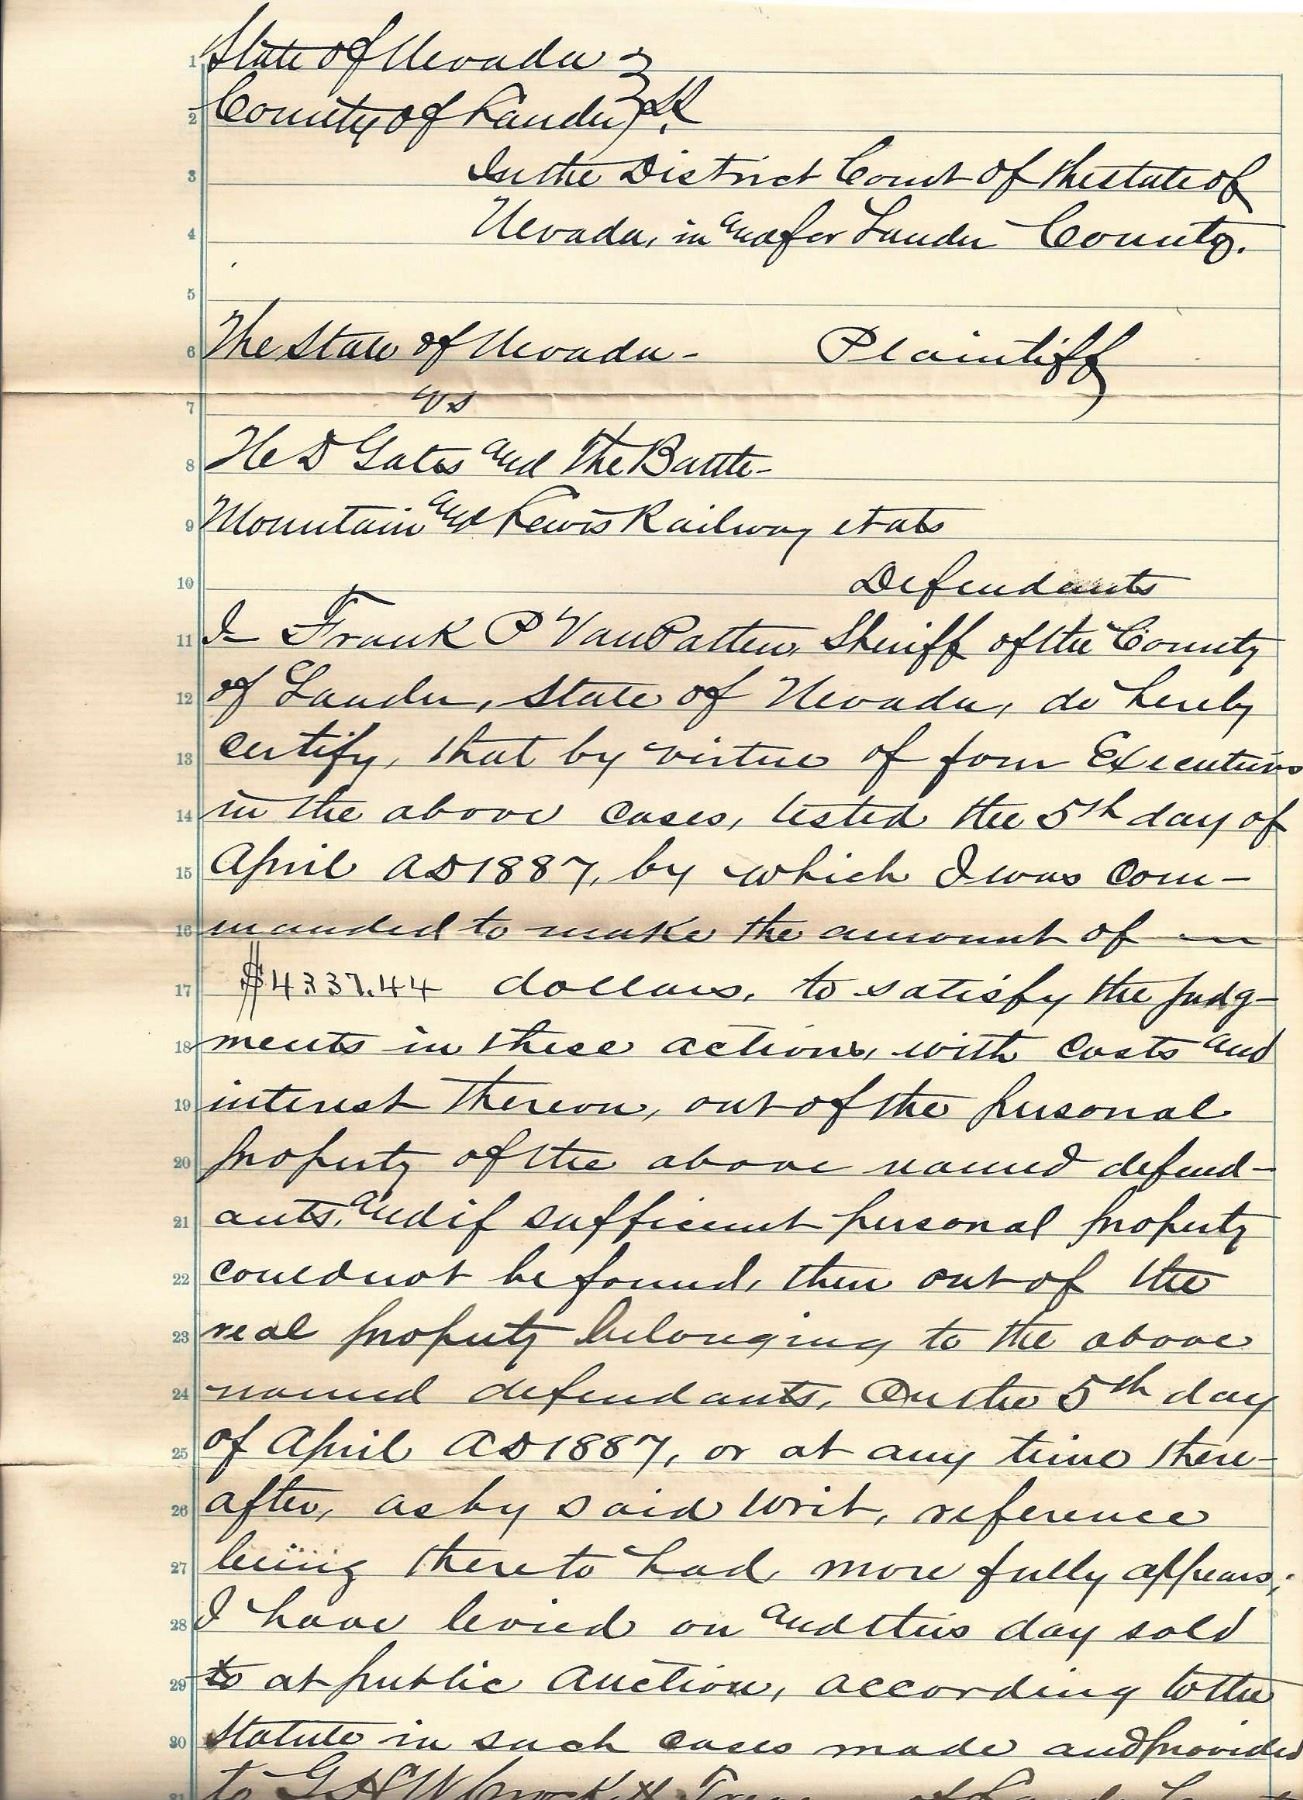 1 State of Nevada }
2 County of Lander } SS.
3 In the District Court of the State of
4 Nevada, in and for Lander County.
5
6 The State of Nevada - Plaintiff
7 vs
8 D Gates and The Battle-
9 Mountain and Lewis Railway et als
10 Defendants
11 I Frank P VanPatten, Sheriff of the County
12 of Lander, State of Nevada, do hereby
13 certify, that by virtue of four Executions
14 in the above cases, tested the 5th day of
15 April AD 1887, by which I was com-
16 manded to make the amount of
17 $4337.44 dollars, to satisfy the judg-
18 ments in these actions, with costs and
19 interest thereon, out of the personal
20 property of the above named defend-
21 ants, and if sufficient personal property
22 could not be found, then out of the
23 real property belonging to the above
24 named defendants, On the 5th day
25 of April AD 1887, or at any time there-
26 after, as by said Writ, reference
27 being thereto had more fully appears;
28 I have levied on and this day sold
29 to at public Auction, according to the
30 Statute in such cases made and provided
31 to Crockett of Lander